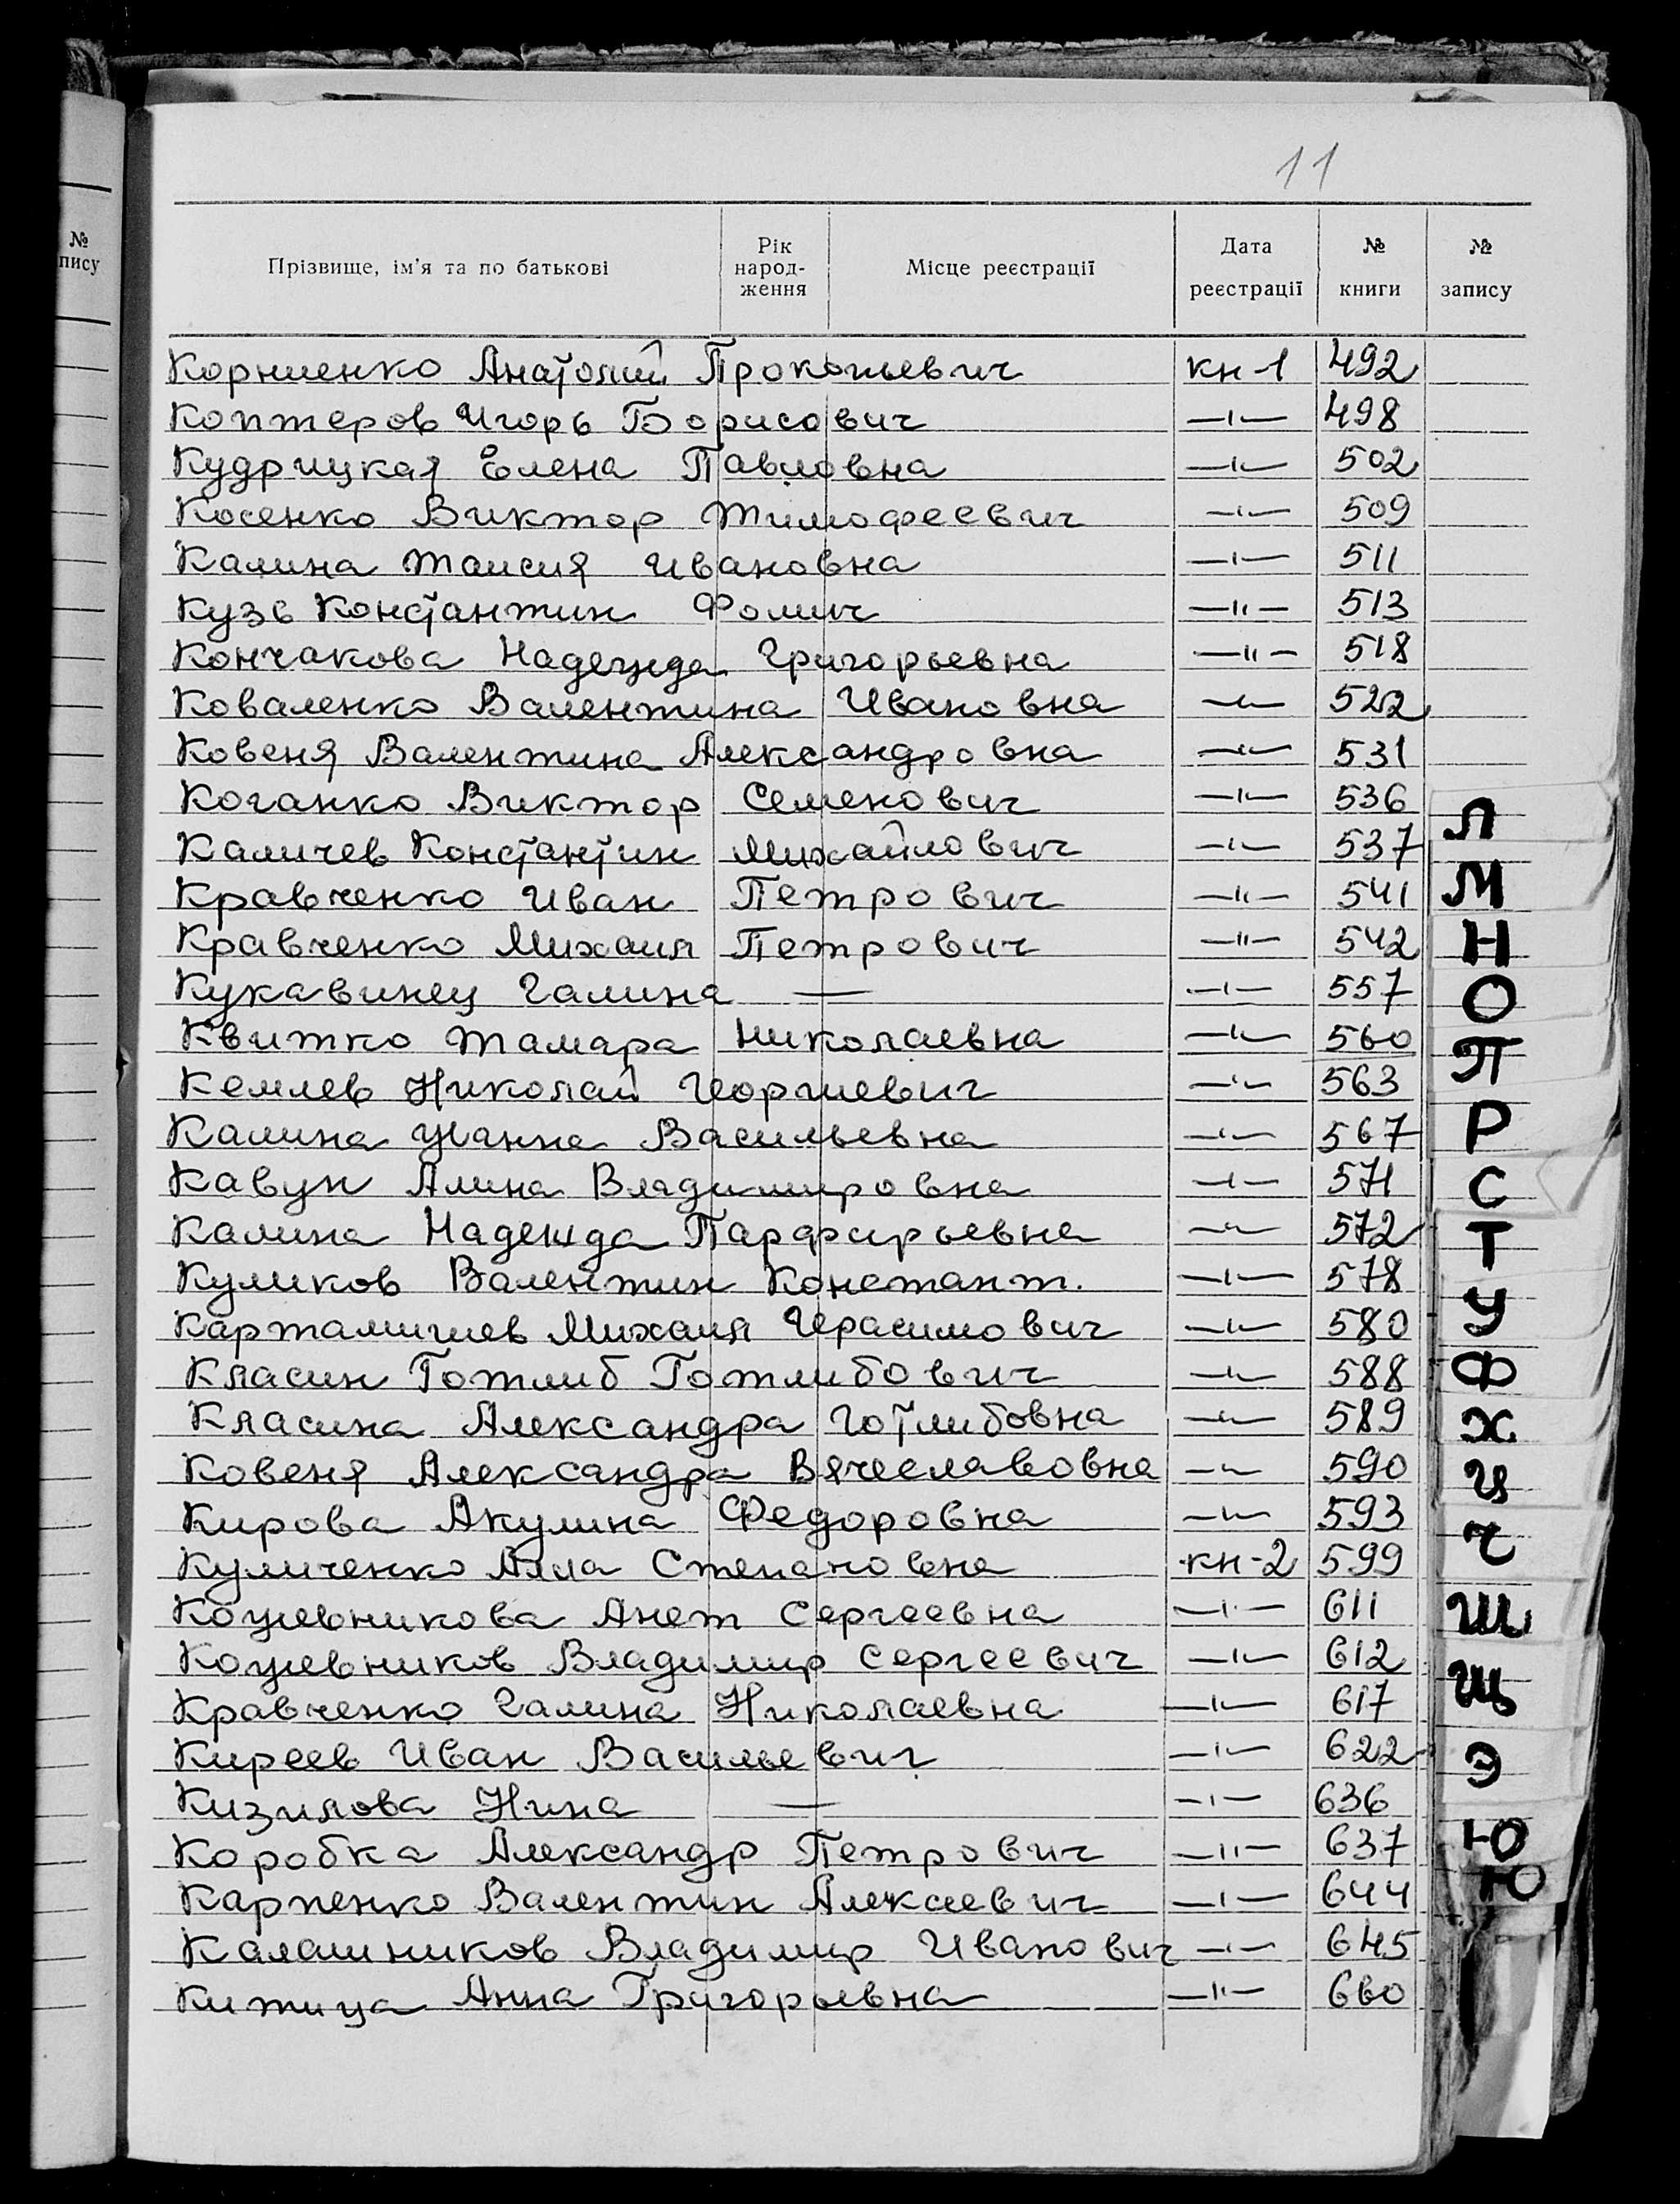 11
№
пису
Прізвище, ім'я та по батькові
Рік
народ-
ження
Місце реєстрації
Дата
реєстрації
№
книги
№
запису
Корниенко Анатолий Прокопьевич кн-1 492
Коптеров Игорь Борисович —ıı— 498
Кудрицкая Елена Павловна —ıı— 502
Косенко Виктор Тимофеевич —ıı— 509
Калина Таисия Ивановна —ıı— 511
Кузь Константин Фомич —ıı— 513
Кончакова Надежда Григорьевна —ıı— 518
Коваленко Валентина Ивановна —ıı— 522
Ковеня Валентина Александровна —ıı— 531
Коганко Виктор Семенович —ıı— 536
Каличев Константин Михайлович —ıı— 537
Кравченко Иван Петрович —ıı— 541
Кравченко Михаил Петрович —ıı— 542
Кукавинец Галина — —ıı— 557
Квитко Тамара Николаевна —ıı— 560
Кемлев Николай Георгиевич —ıı— 563
Калина Жанна Васильевна —ıı— 567
Кавун Алина Владимировна —ıı— 571
Калина Надежда Парфирьевна —ıı— 572
Куликов Валентин Констант. —ıı— 578
Картамишев Михаил Герасимович —ıı— 580
Класин Готлиб Готлибович —ıı— 588
Класина Александра Готлибовна —ıı— 589
Ковеня Александра Вячеславовна —ıı— 590
Кирова Акулина Федоровна —ıı— 593
Куличенко Алла Степановна кн-2 599
Кожевникова Анет Сергеевна —ıı— 611
Кожевников Владимир Сергеевич —ıı— 612
Кравченко Галина Николаевна —ıı— 617
Киреев Иван Васильевич —ıı— 622
Кизилова Нина — —ıı— 636
Коробка Александр Петрович —ıı— 637
Карпенко Валентин Алексеевич —ıı— 644
Калашников Владимир Иванович —ıı— 645
Китица Анна Григорьевна —ıı— 660
Л
М
Н
О
П
Р
С
Т
У
Ф
Х
Ц
Ч
Ш
Щ
Э
Ю
Ю